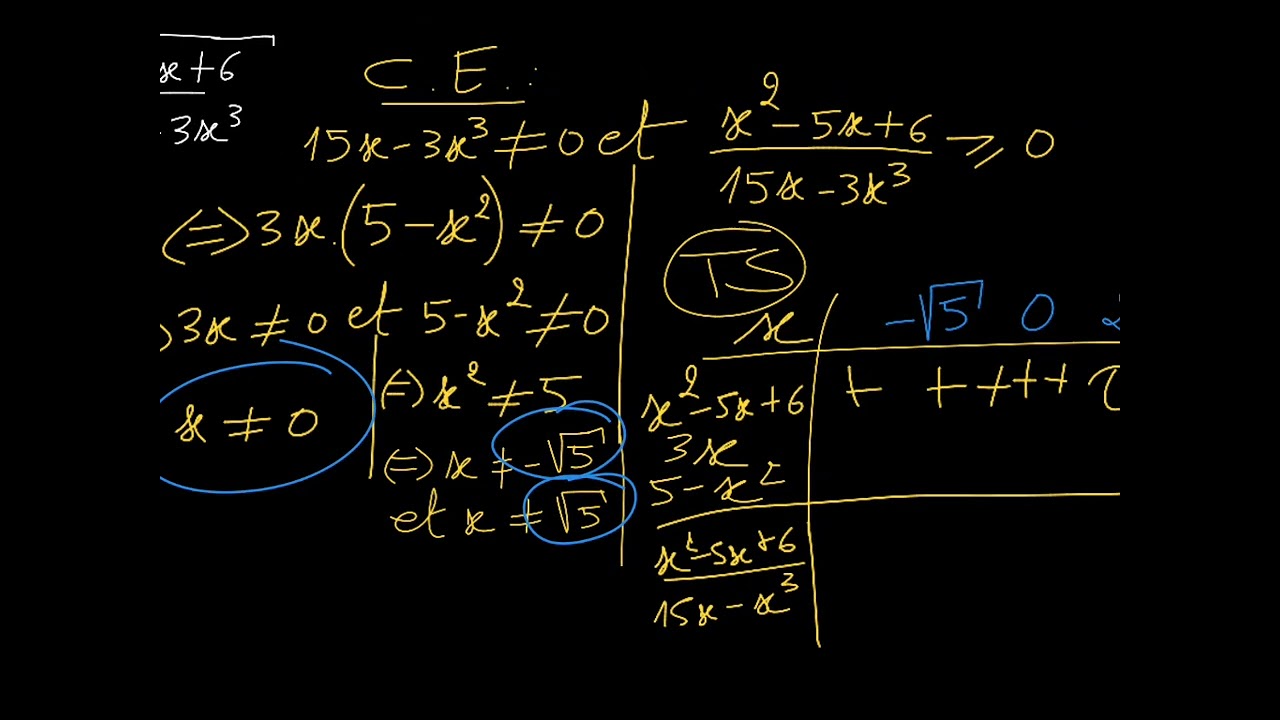 x+6
3x³
C.E.:
15x-3x³≠0 et
(x²-5x+6)/(15x-3x³) ⩾ 0
(⇔) 3x.(5-x²)≠0
3x≠0 et 5-x²≠0
x≠0
(=) x²≠5
(=) x≠-√5
et x≠√5
TS
x -√5 0
x²-5x+6 + + + + +
3x
5-x²
(x²-5x+6)/(15x-x³)